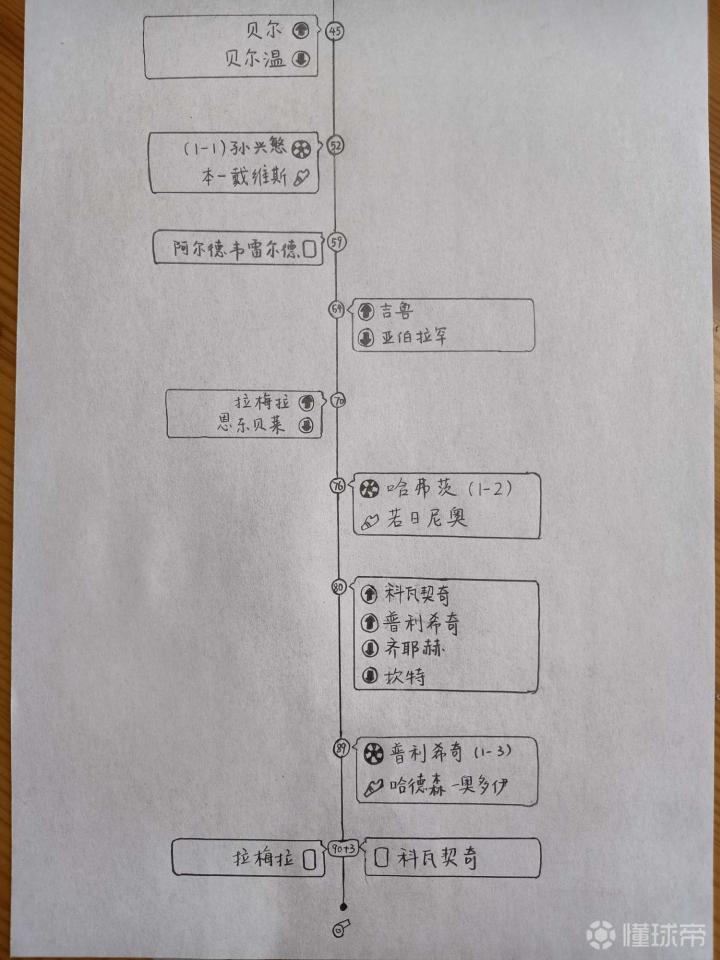 贝尔
45
贝尔温
(1-1)孙兴慜
52
本-戴维斯
阿尔德韦雷尔德
59
64
吉鲁
亚伯拉罕
拉梅拉
70
恩东贝莱
76
哈弗茨(1-2)
若日尼奥
80
科瓦契奇
普利希奇
齐耶赫
坎特
89
普利希奇(1-3)
哈德森-奥多伊
拉梅拉
90+3
科瓦契奇
懂球帝